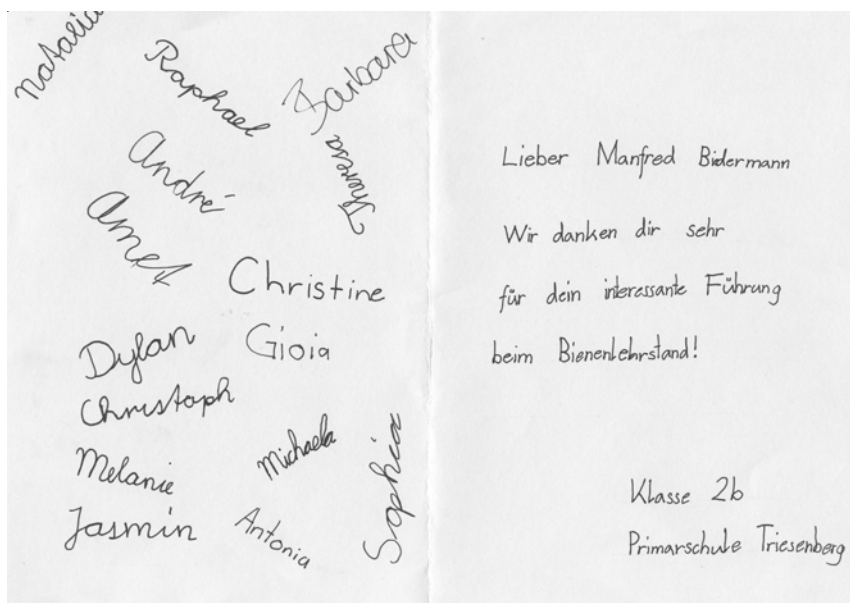 Natalia
Raphael
Barbara
Theresa
André
Amet
Christine
Dylan
Gioia
Christoph
Michaela
Sophia
Melanie
Jasmin
Antonia
Lieber Manfred Bidermann
Wir danken dir sehr
für dein interessante Führung
beim Bienenlehrstand!
Klasse 2b
Primarschule Triesenberg